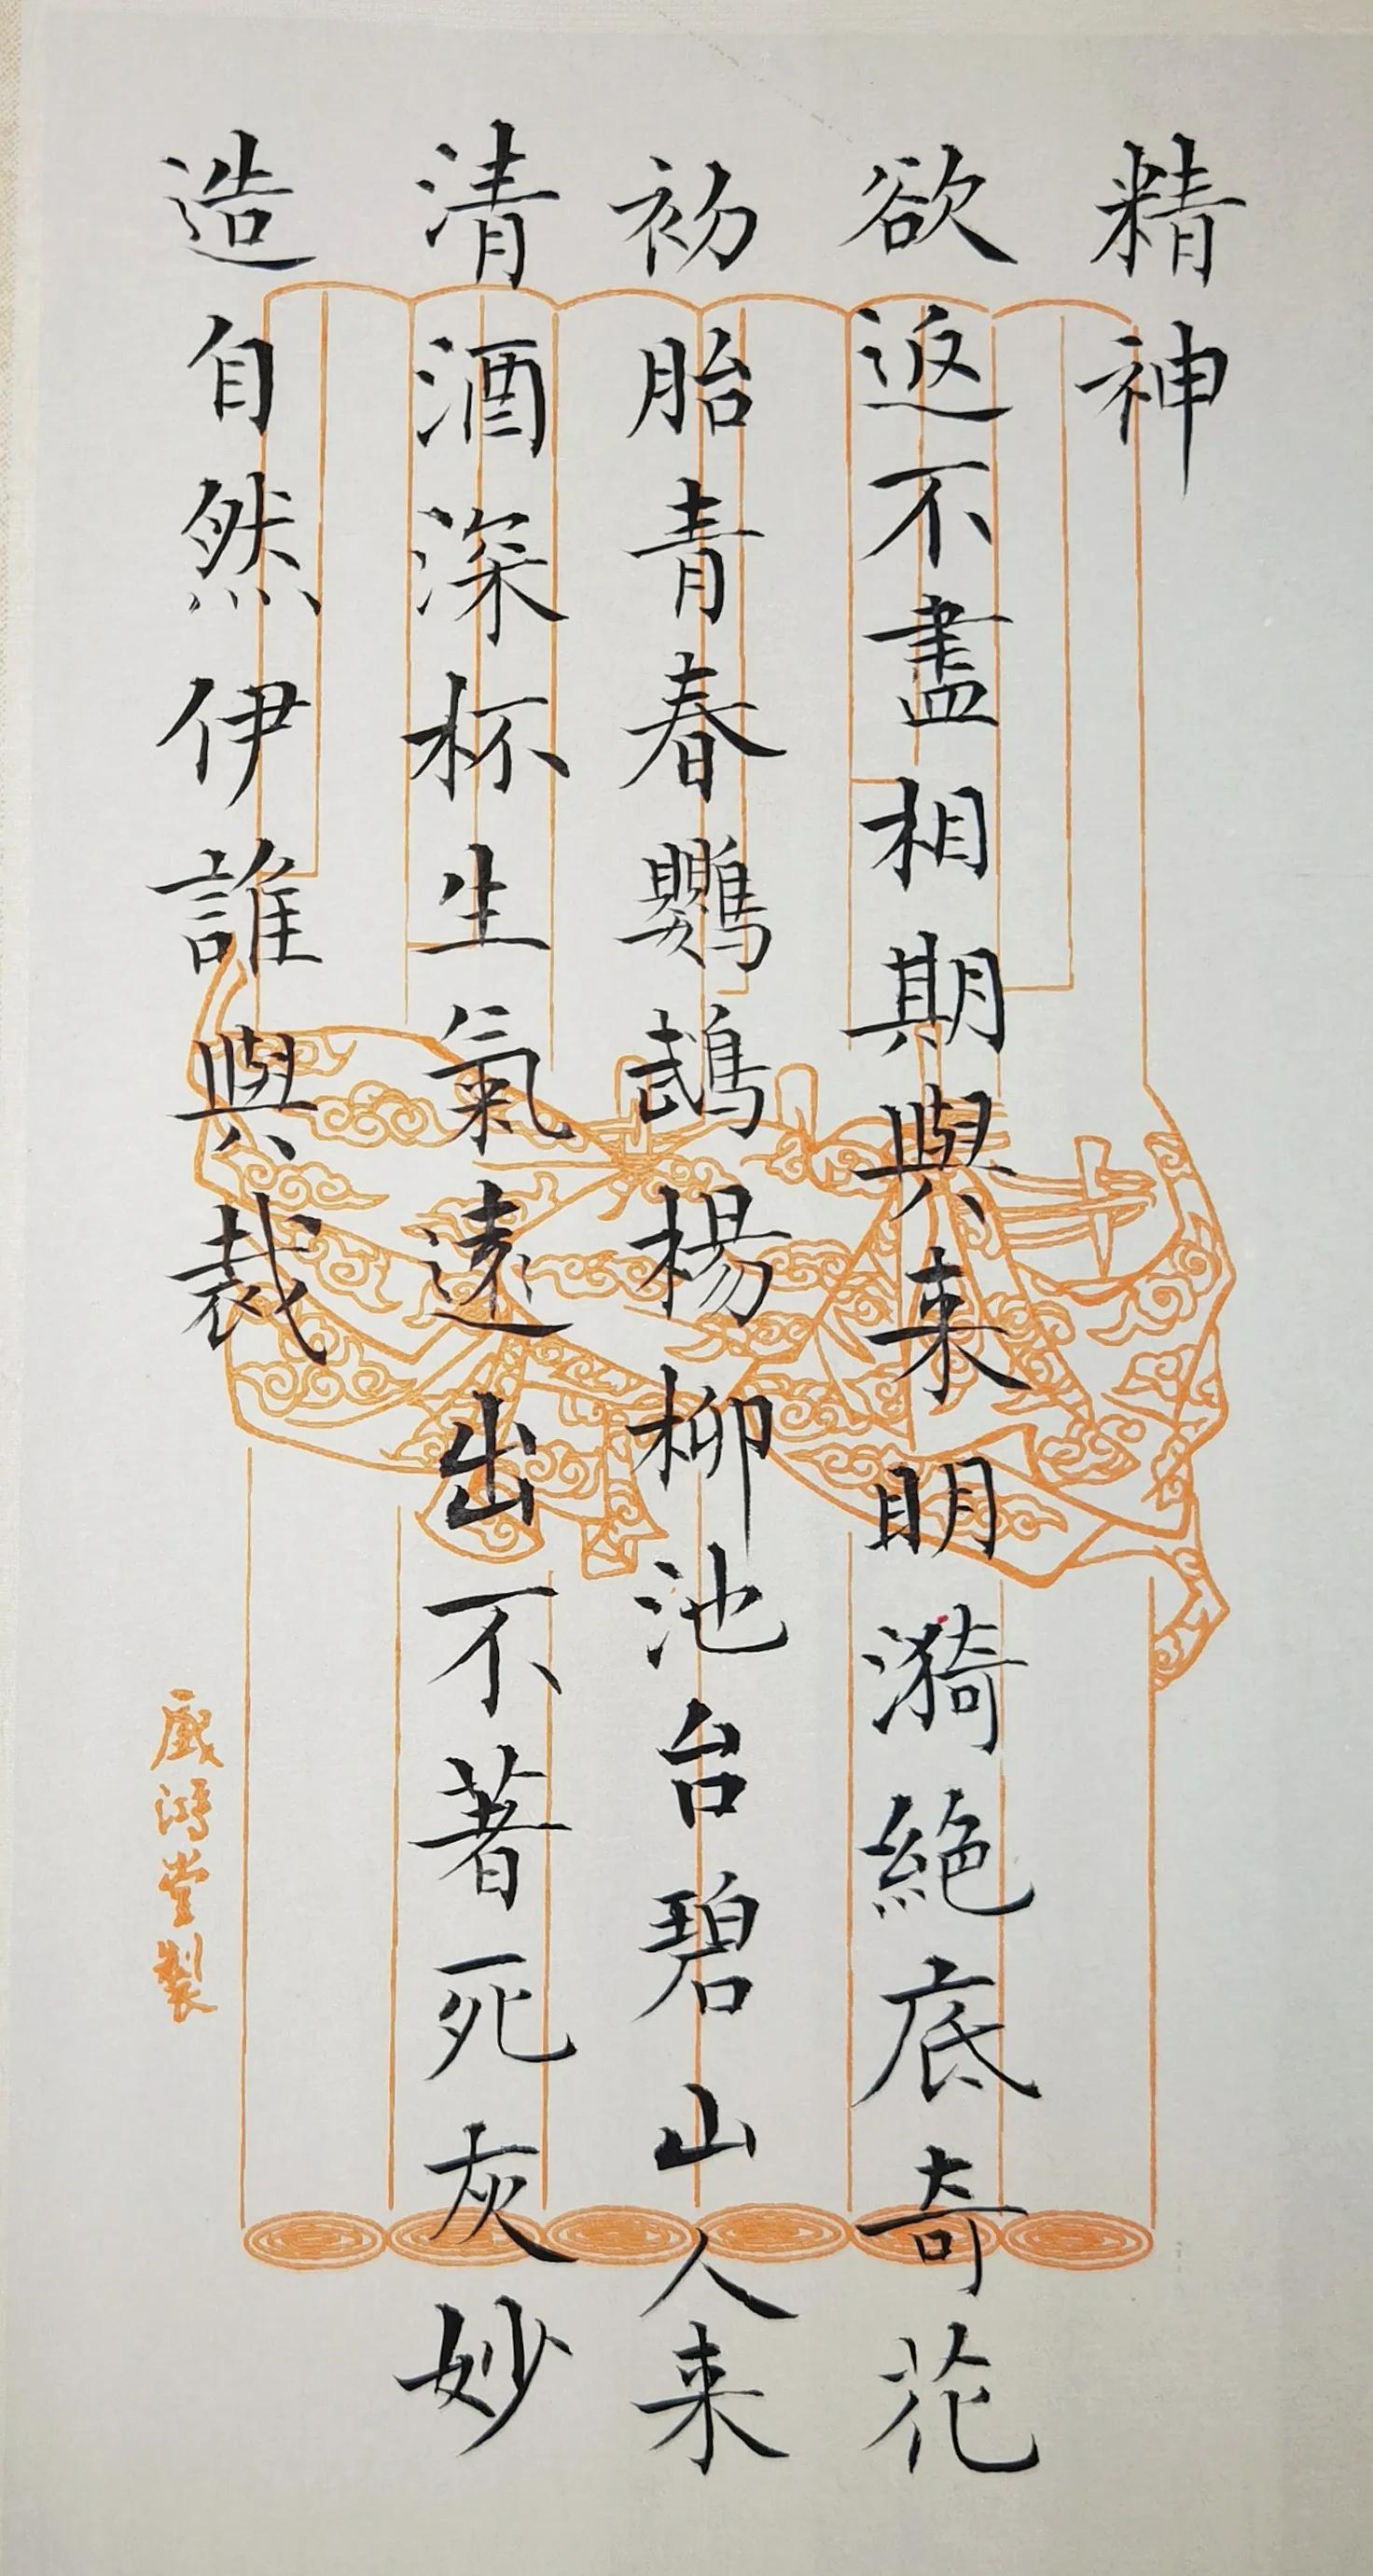 精神
欲返不盡相期與来明漪絶底奇花
初胎青春鸚鵡楊柳池台碧山人来
清酒深杯生氣遠出不著死灰妙
造自然伊誰與裁
戲鴻堂製